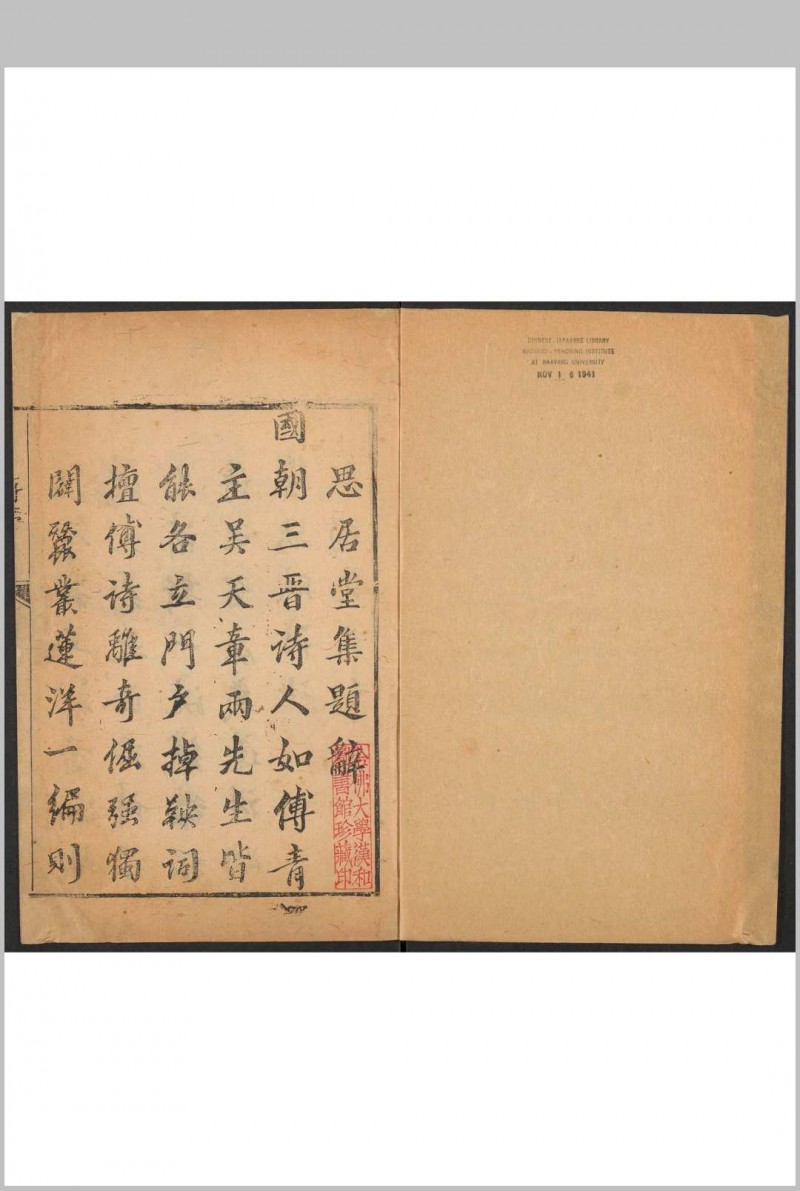 CHINESE-JAPANESE LIBRARY
HARVARD-YENCHING INSTITUTE
AT HARVARD UNIVERSITY
NOV 1 6 1941
思居堂集題辭
國朝三晋詩人如傅青
主吴天章兩先生皆
能各立門户掉鞅詞
壇傅詩離奇倔强獨
闢蠶叢蓮洋一編則
哈佛大學漢和
圖書館珍藏印